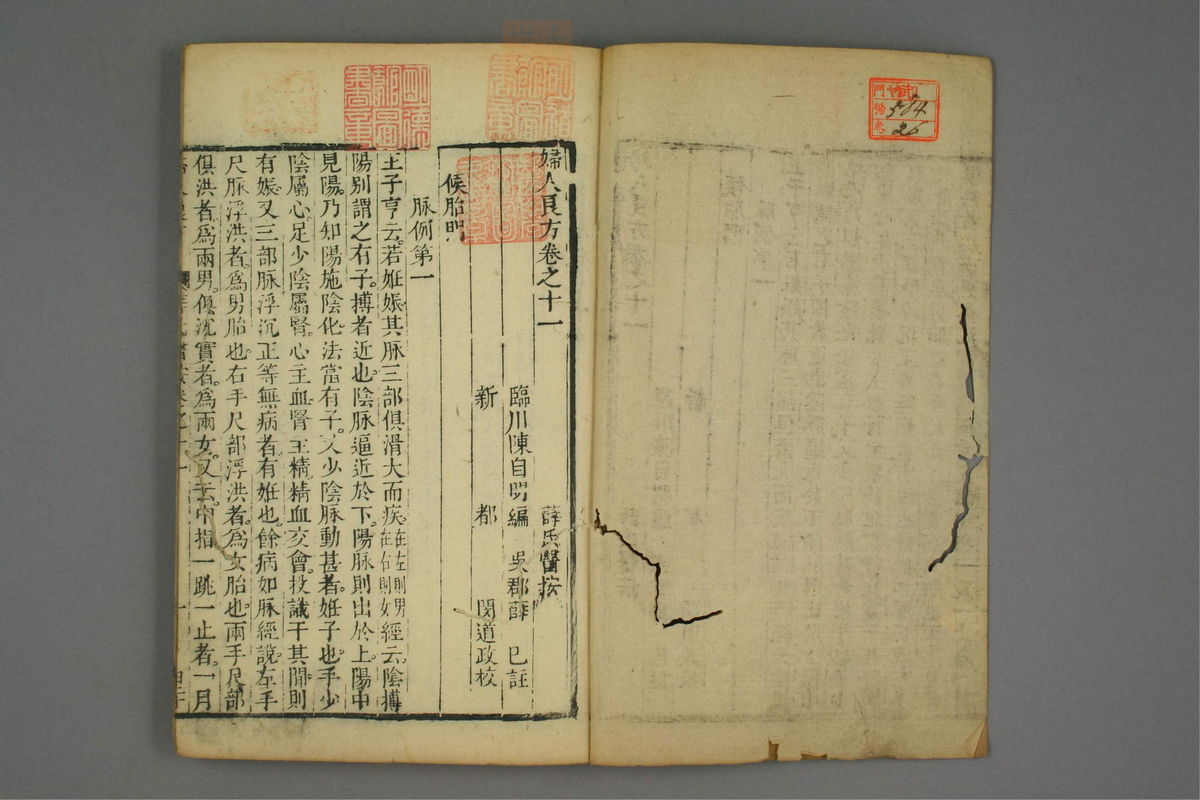 婦人良方卷之十一
薛氏醫按
臨川陳自明編 吳郡薛 己註
新 都 閔道政校
候胎門
脉例第一
王子亨云若姙娠其脉三部俱滑大而疾在左則男在右則女經云陰搏
陽别謂之有子搏者近也陰脉逼近於下陽脉則出於上陽中
見陽乃知陽施陰化法當有子又少陰脉動甚者姙子也手少
陰屬心足少陰屬腎心主血腎主精精血交會投識于其間則
有娠又三部脉浮沉正等無病者有姙也餘病如脉經說左手
尺脉浮洪者為男胎也右手尺部浮洪者為女胎也兩手尺部
俱洪者為兩男俱沉實者為兩女又云中指一跳一止者一月
明德
館圖
書章
門
號 584
卷 26